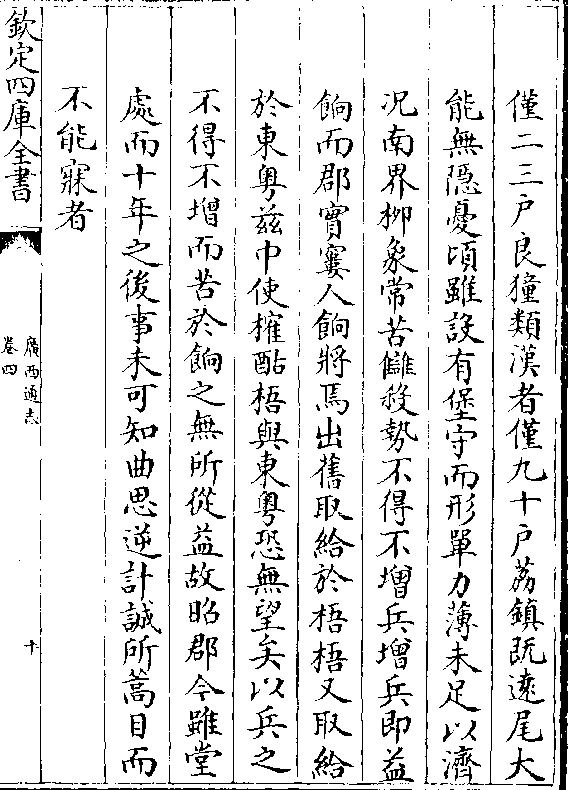 僅二三户良獞類漢者僅九十户荔鎮既逺尾大
能無隠憂頃雖設有堡守而形單力薄未足以濟
况南界柳象常苦讎殺勢不得不增兵增兵即益
餉而郡實窶人餉將焉出舊取給於梧梧又取給
於東粤兹中使榷酤梧與東粤恐無望矣以兵之
不得不增而苦於餉之無所從益故昭郡今雖堂
處而十年之後事未可知曲思逆計誠所蒿目而
不能寐者
欽定四庫全書
廣西通志
卷四
十